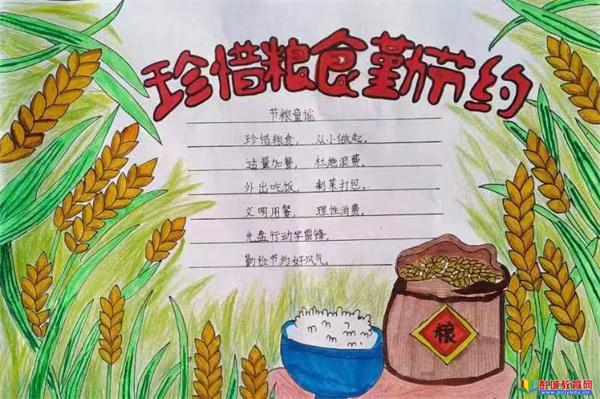 珍惜粮食勤节约
节粮童谣
珍惜粮食，从小做起。
适量加餐，杜绝浪费。
外出吃饭，剩菜打包。
文明用餐，理性消费。
光盘行动学雷锋，
勤俭节约好风气。
粮
彭城教育网
www.pcjyedu.cn